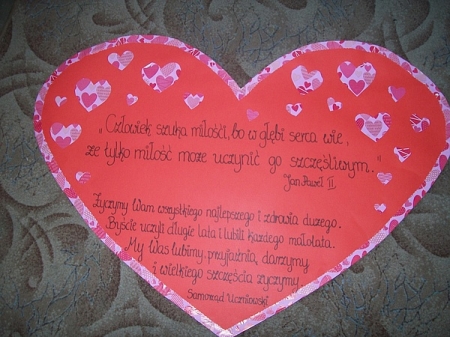 „Człowiek szuka miłości, bo w głębi serca wie,
że tylko miłość może uczynić go szczęśliwym."
Jan Paweł II.
Życzymy Wam wszystkiego najlepszego i zdrowia dużego.
Byście uczyli długie lata i lubili każdego małolata.
My Was lubimy, przyjaźnią darzymy
i wielkiego szczęścia życzymy.
Samorząd Uczniowski